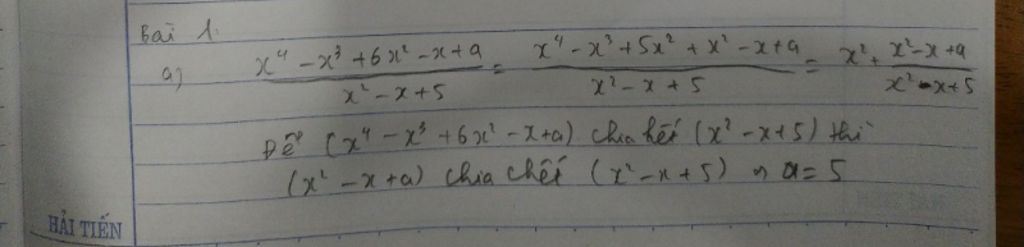 Bài 1.
a) (x⁴ - x³ + 6x² - x + a)/(x² - x + 5) = (x⁴ - x³ + 5x² + x² - x + a)/(x² - x + 5) = x² + (x² - x + a)/(x² - x + 5)
Để (x⁴ - x³ + 6x² - x + a) chia hết (x² - x + 5) thì
(x² - x + a) chia chết (x² - x + 5) → a = 5
HẢI TIẾN